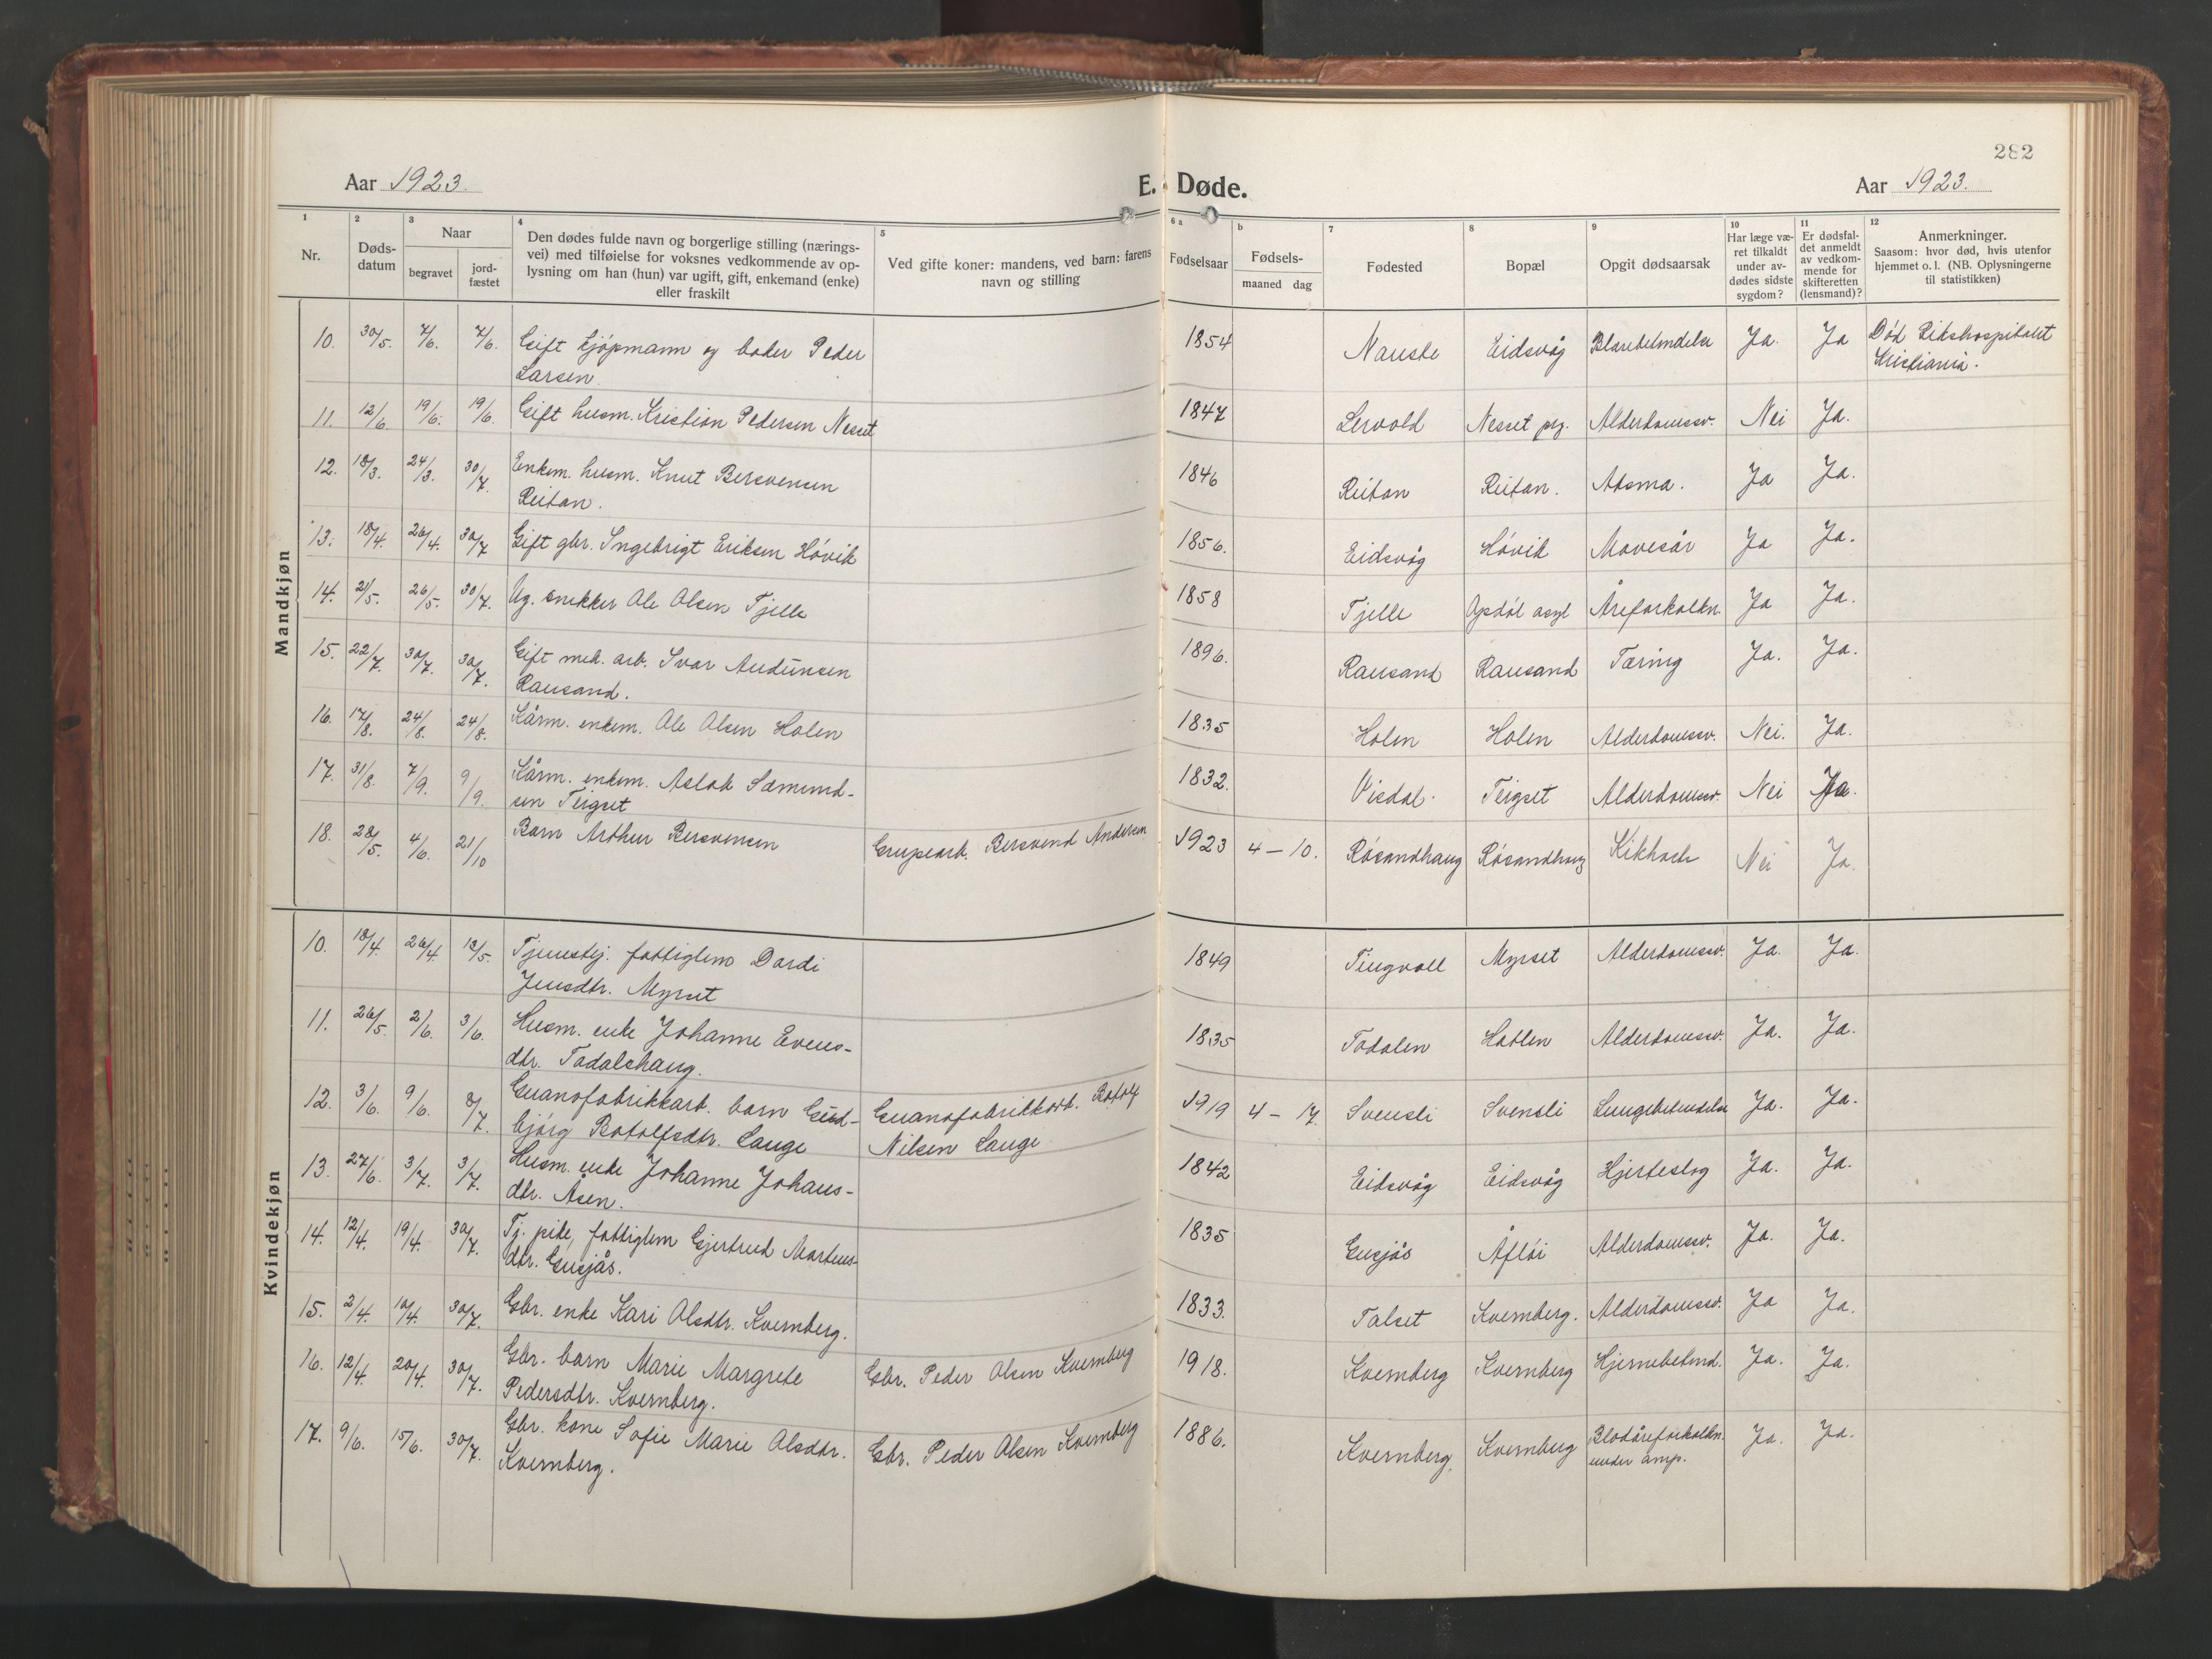 282
Aar 1923. E. Døde. Aar 1923.
1 2 3 4 5 6 a b 7 8 9 10 11 12
Nr.
Døds-
datum
Naar
begravet
jord-
fæstet
Den dødes fulde navn og borgerlige stilling (nærings-
vei) med tilføielse for voksnes vedkommende av op-
lysning om han (hun) var ugift, gift, enkemand (enke)
eller fraskilt
Ved gifte koner: mandens, ved barn: farens
navn og stilling
Fødselsaar
Fødsels-
maaned dag
Fødested
Bopæl
Opgit dødsaarsak
Har læge væ-
ret tilkaldt
under av-
dødes sidste
sygdom?
Er dødsfal-
det anmeldt
av vedkom-
mende for
skifteretten
(lensmand)?
Anmerkninger.
Saasom: hvor død, hvis utenfor
hjemmet o. l. (NB. Oplysningerne
til statistikken)
Mandkjøn
10. 30/5. 7/6. 7/6. Gift kjøpmann og baker Peder 1854 Nauste Eidsvåg Ja. Ja Død Rikshospitalet
Larsen. Kristiania.
11. 12/6 19/6. 19/6. Gift husm. Kristian Pedersen Nesset 1847 Lervold Nesset prg. Alderdomssv. Nei Ja.
12. 18/3. 24/3. 30/7. Enkem. husm. Knut Bersvensen 1846 Reitan Reitan. Astma. Ja Ja.
Reitan.
13. 18/4. 26/4. 30/7 Gift gbr. Ingebrigt Eriksen Høvik 1856. Eidsvåg Høvik Mavesår Ja Ja.
14. 21/5. 26/5. 30/7. Ug. snekker Ole Olsen Tjelle 1858 Tjelle Opdøl asyl Åreforkalkn. Ja Ja.
15. 22/7. 30/7. 30/7. Gift mek. arb. Ivar Audunsen 1896. Rausand Rausand Tæring Ja. Ja.
Rausand.
16. 17/8. 24/8. 24/8. Kårm. enkem. Ole Olsen Holen 1835 Holen Holen Alderdomssv. Nei. Ja.
17. 31/8. 7/9. 9/9. Kårm. enkem. Aslak Sæmund- 1832. Visdal. Teigset Alderdomssv. Nei Ja.
sen Teigset
18. 28/5. 4/6. 21/10 Barn Arthur Bersvensen Grupearb. Bersvend Andersen 1923 4 – 10. Røsandhaug Røsandhaug Kikhoste Nei Ja.
Kvindekjøn
10. 18/4. 26/4 13/5. Tjenestej. fattiglem Dordi 1849 Tingvoll Myrset Alderdomssv. Ja. Ja.
Jensdtr. Myrset
11. 26/5 2/6. 3/6. Husm. enke Johanne Evens- 1835 Todalen Hatlen Alderdomssv. Ja. Ja.
dtr. Todalshaug.
12. 3/6. 9/6. 8/7. Guanofabrikkarb. barn Gud- Guanofabrikkarb. Botolf 1919 4 – 17. Svensli Svensli Lungebetendelse Ja. Ja.
bjørg Botolfsdtr. Lange Nilsen Lange
13. 27/6. 3/7. 3/7. Husm. enke Johanne Johans- 1842 Eidsvåg Eidsvåg Hjerteslag Ja. Ja.
dtr. Åsen.
14. 12/4. 19/4. 30/7. Tj. pike, fattiglem Gjertrud Martens- 1835 Gusjås Alderdomssv. Ja. Ja.
dtr. Gusjås.
15. 2/4. 10/4. 30/7. Gbr. enke Kari Olsdtr. Kvernberg. 1833. Talset Kvernberg. Alderdomssv. Ja Ja.
16. 12/4. 20/4. 30/7. Gbr. barn Marie Margrete Gbr. Peder Olsen Kvernberg 1918. Kvernberg Kvernberg Hjernebetend. Ja. Ja.
Pedersdtr. Kvernberg.
17. 9/6. 15/6. 30/7. Gbr. kone Sofie Marie Olsdtr. Gbr. Peder Olsen Kvernberg 1886. Kvernberg. Kvernberg Blodåreforkalkn. Ja. Ja.
Kvernberg. under amp.